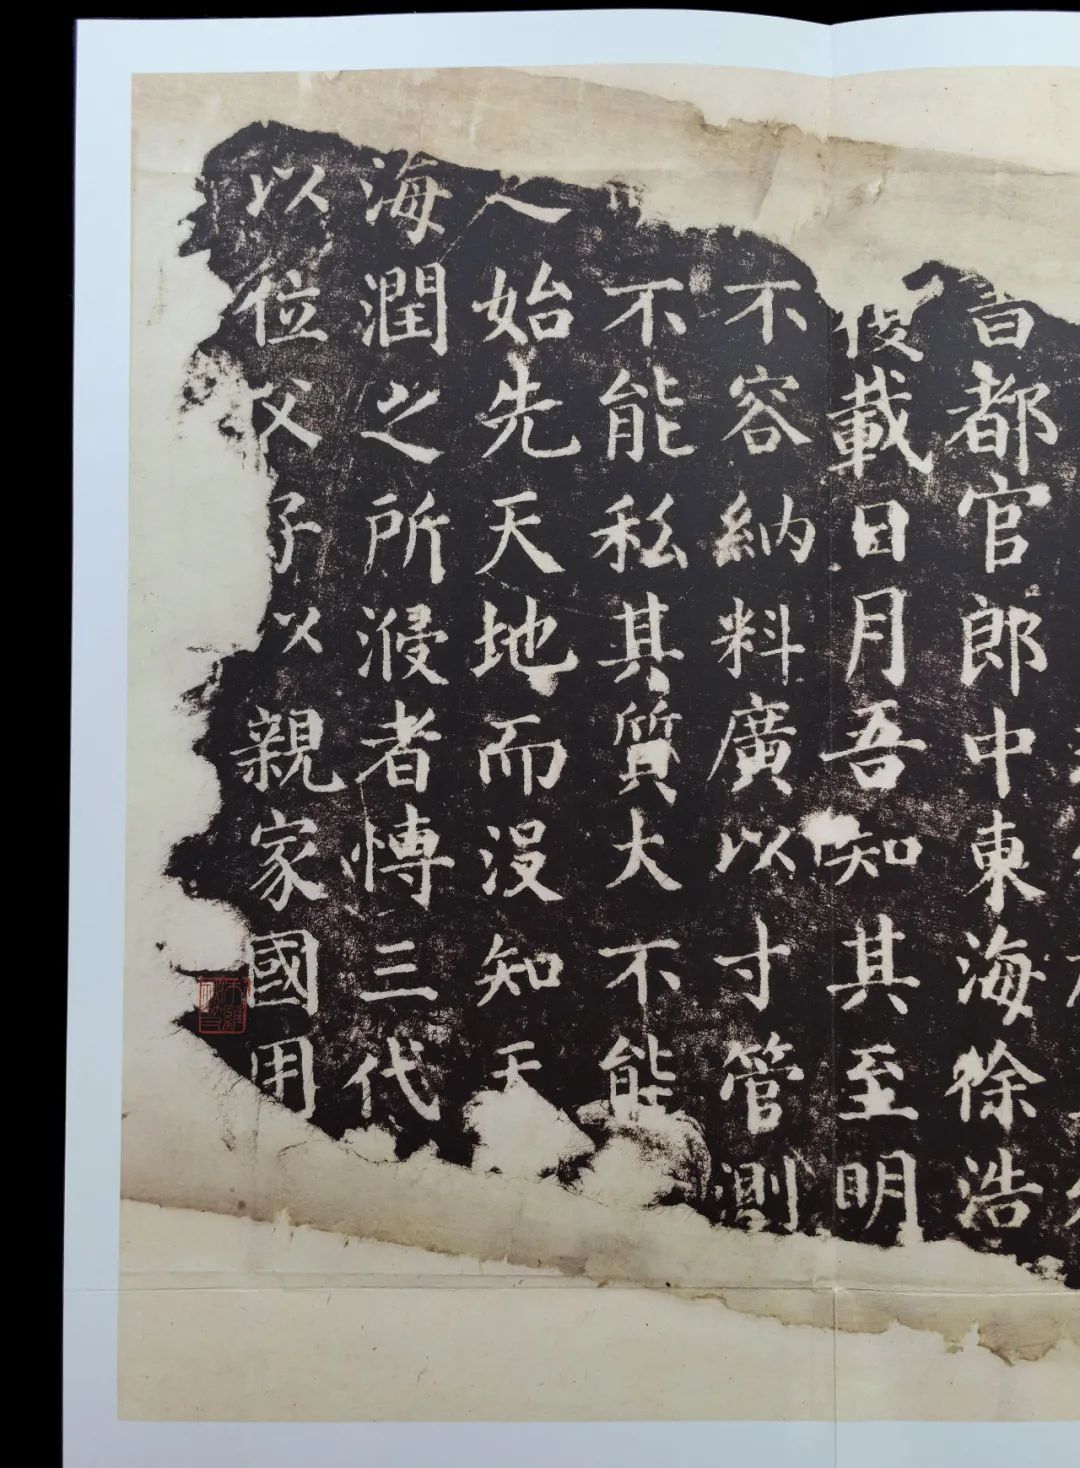 都官郎中東海徐浩
載日月吾知其至明
不容納料廣以寸管測
不能私其質大不能
人始先天地而没知天
海潤之所漫者慱三代
以位父子以親家國用